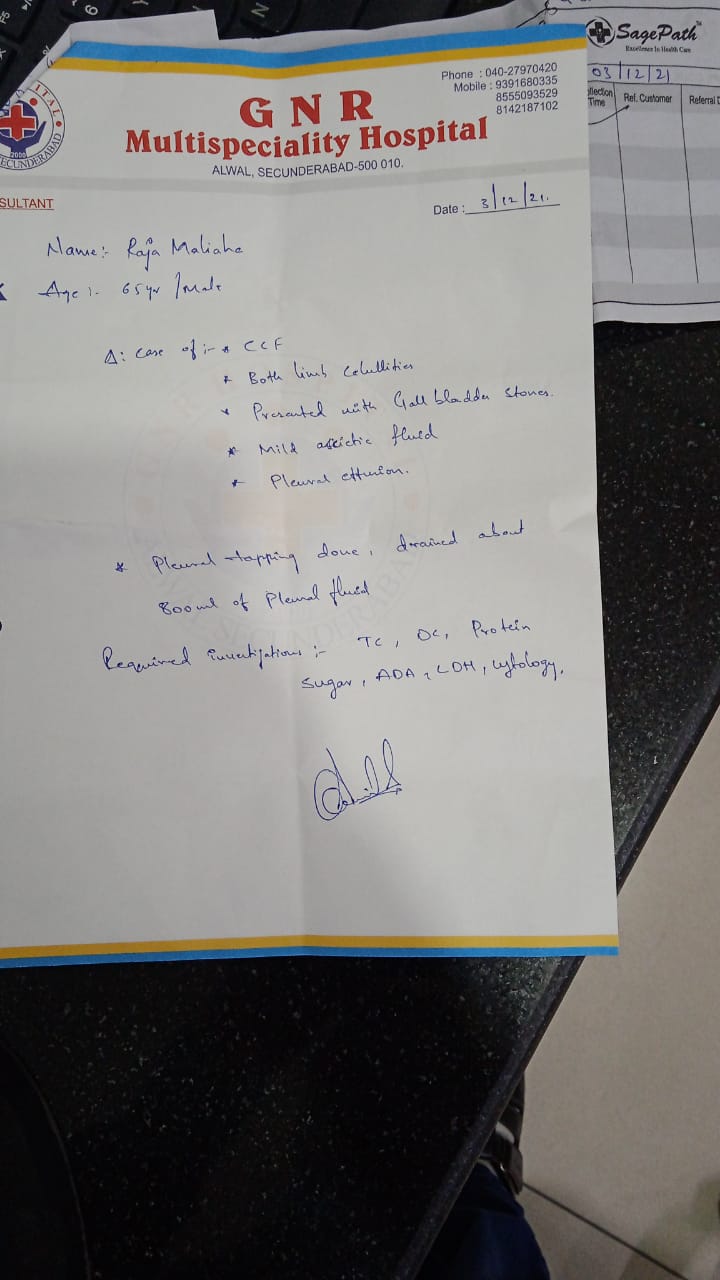 SagePath
Excellence In Health Care
03/12/21
llection Time
Ref. Customer
Referral D
Phone : 040-27970420
Mobile : 9391680335
8555093529
8142187102
GNR
Multispeciality Hospital
ALWAL, SECUNDERABAD-500 010.
ITAL
2000
SECUNDERABAD
SULTANT
Date : 3/12/21.
Name:- Raja Maliahe
Age :- 65yr /Male
Δ: Case of :- * CCF
* Both limb Celullities
* Presented with Gall bladder stones.
* Mild ascietic fluid
* Pleural effusion.
* Pleural tapping done, drained about
800ml of Pleural fluid
Required investigations :- TC, DC, Protein
Sugar, ADA, LDH, Cytology.